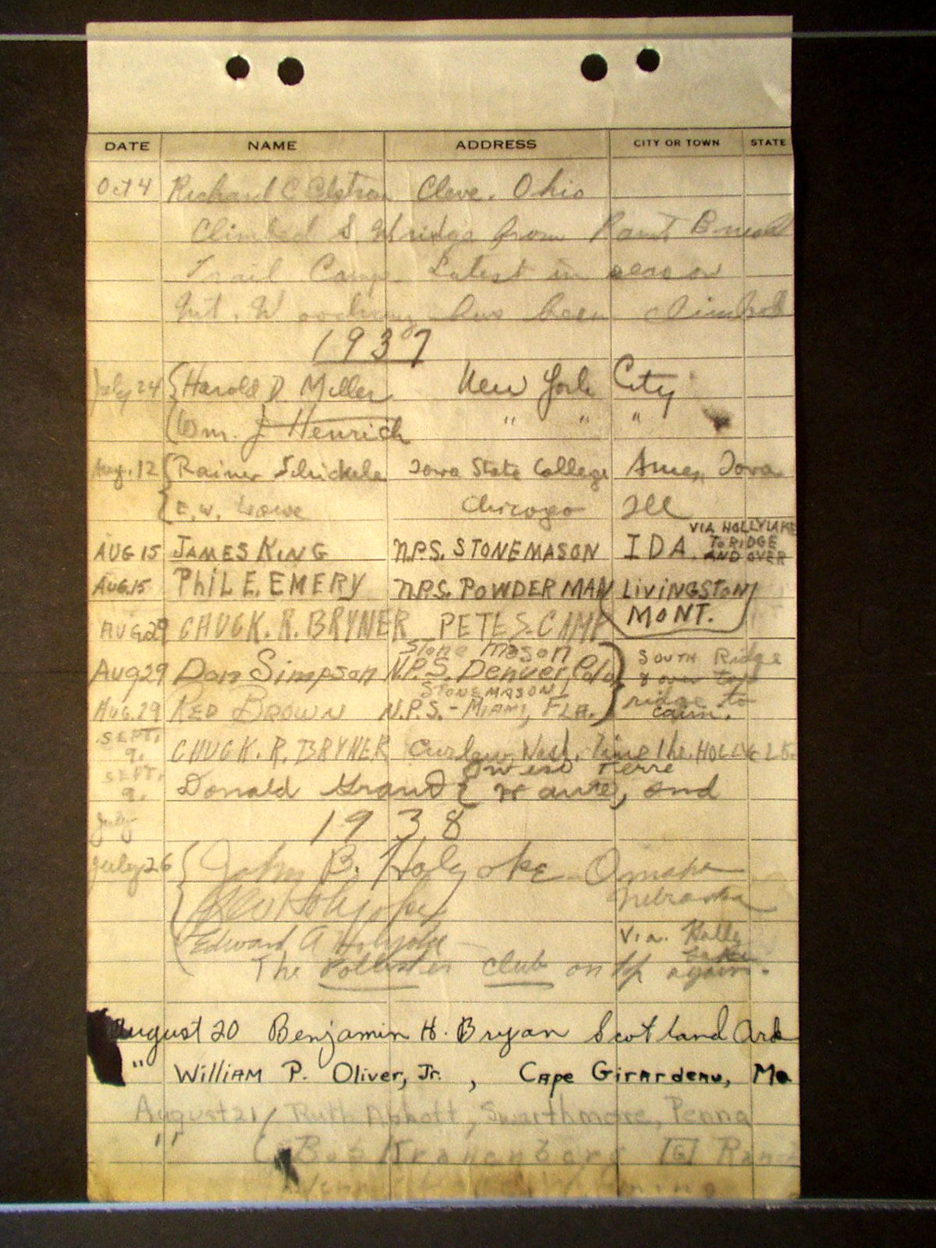 DATE NAME ADDRESS CITY OR TOWN STATE
Oct 4 Richard C Cleve. Ohio
Climbed S. W ridge from Paint Brush
Trail Camp. Latest in season
Mt. Woodring has been climbed
1937
July 24 Harold D. Miller New York City
Wm. J Henrich " " "
Aug. 12 Rainer Schickele Iowa State College Ames, Iowa
E. W. Lowe Chicago Ill
VIA HOLLY LAKE
AUG 15 JAMES KING N.P.S. STONEMASON IDA. TO RIDGE
AND OVER
AUG. 15 PHIL E. EMERY N.P.S. POWDER MAN LIVINGSTON
MONT.
AUG. 29 CHUCK. R. BRYNER PETES. CAMP
Stone Mason
Aug 29 Don Simpson N.P.S. Denver, Colo SOUTH Ridge
& over top
STONEMASON
AUG. 29 RED BROWN N.P.S. - MIAMI, FLA. ridge to
cairn.
SEPT. 9. CHUCK. R. BRYNER Curlew Wash. HOLLY LK.
Terre
SEPT. 9. Donald Haute, Ind
1938
July
July 26 John B. Holyoke Omaha
Holyoke Nebraska
Edward A Holyoke Via. Holly
Lake
The club on top again.
August 20 Benjamin H. Bryan Scotland Ark
" WILLIAM P. OLIVER, Jr. , CAPE GIRARDEAU, Mo
August 21 Ruth Abbott, Swarthmore, Penna
" Bob Kranenberg